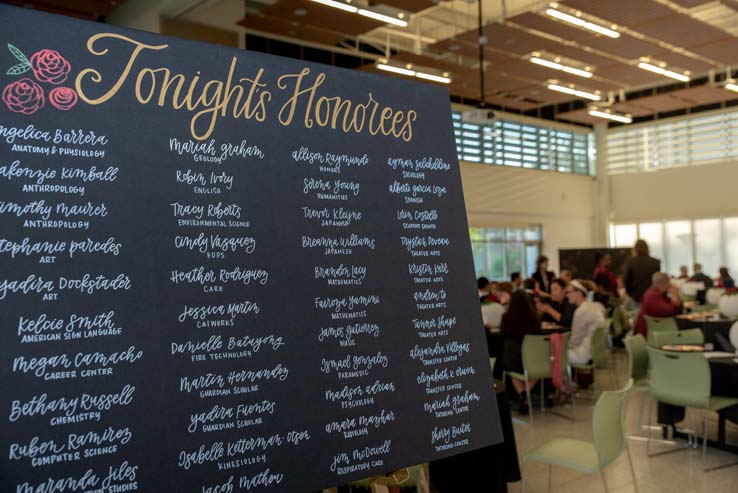 Tonight's Honorees
Angelica Barrera
Anatomy & Physiology
Makenzie Kimball
Anthropology
Timothy Maurer
Anthropology
Stephanie Paredes
Art
Yadira Dockstader
Art
Kelcie Smith
American Sign Language
Megan Camacho
Career Center
Bethany Russell
Chemistry
Ruben Ramirez
Computer Science
Miranda Jiles
Studies
Mariah Graham
Geology
Robin Ivory
English
Tracy Roberts
Environmental Science
Cindy Vasquez
EOPS
Heather Rodriguez
CARE
Jessica Martin
CalWORKs
Danielle Batuyong
Fire Technology
Martin Hernandez
Guardian Scholar
Yadira Fuentes
Guardian Scholar
Isabelle Ketterman-Olsen
Kinesiology
Jacob Mathew
Allison Raymundo
Honors
Serena Young
Humanities
Trevor Kleyne
Japanese
Breanna Williams
Japanese
Brandon Lacy
Mathematics
Fairoza Yamini
Mathematics
James Gutierrez
Music
Ismael Gonzalez
Paramedic
Madison Adrian
Psychology
Amara Mayhar
Radiology
Jim McDowell
Respiratory Care
Ayman Salaheldine
Sociology
Alberto Garcia Loza
Spanish
Costello
Student Senate
Theater Arts
Kristin Kerr
Theater Arts
Andrew To
Theater Arts
Tanner Shupe
Theater Arts
Alejandra Villegas
Transfer Center
Elizabeth K. Orum
Transfer Center
Mariah Graham
Tutoring Center
Shery Buiter
Tutoring Center